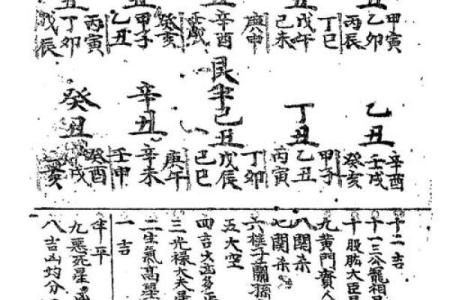 甲寅
乙卯
丙辰
丁巳
戊午
己未
庚申
辛酉
癸亥
甲子
乙丑
丙寅
丁卯
戊辰
乙丑
丁丑
艮 己丑
辛丑
癸丑
辛酉
壬戌
癸亥
甲子
乙丑
丙寅
丁卯
戊辰
己巳
庚午
辛未
壬申
癸酉
戌
亥
十二吉
十一三公龍相
十股肱大臣
九黃門賓人
八関杀
七関杀
六 子關
五大空
四吉凶
三光祿大夫星
二生氣高星
一吉
半平
九惡死星
八吉凶均分